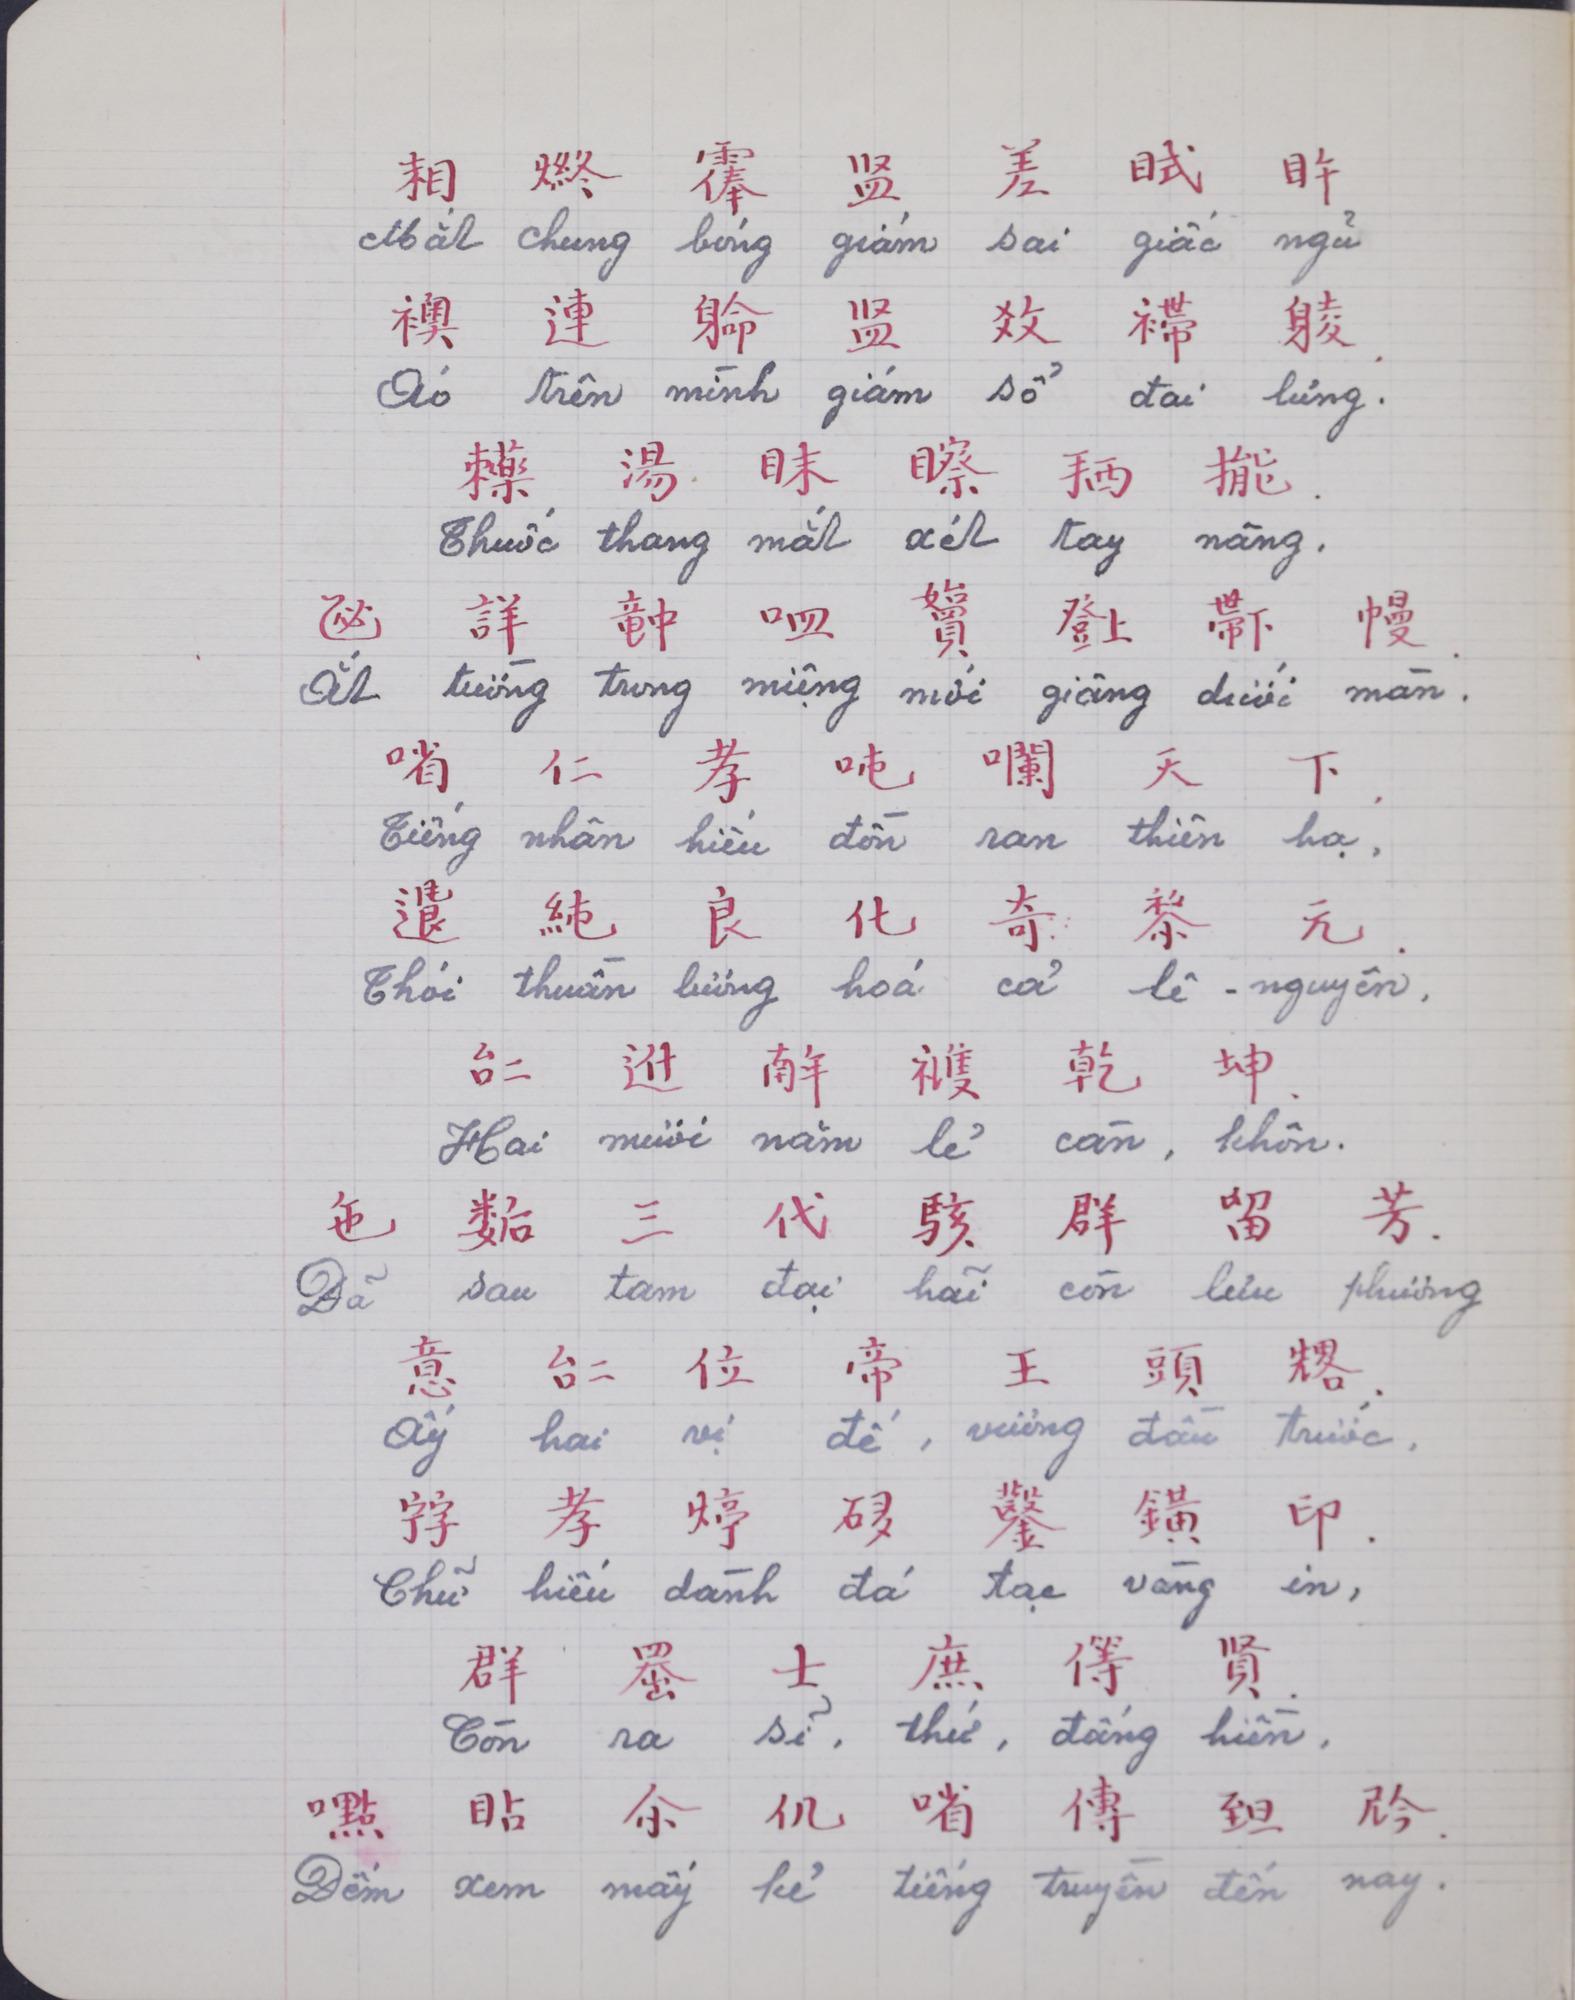 Mắt chung bóng giám sai giấc ngủ
襖 連 䠲 监 效 𧜵 𨉞.
Áo trên mình giám sổ đai lưng.
湯 眜 瞭 拪 擺.
Thuốc thang mắt xét tay nâng.
詳 𥪞 𠰘 登上 帶下 幔.
Ắt tường trong miệng mới giâng dưới màn.
㗂 仁 孝 吨 囒 天 下.
Tiếng nhân hiếu đồn ran thiên hạ,
純 良 化 奇 黎 元.
Thói thuần lương hoá cả lê - nguyên,
𠄩 𨑮 𢆥 𥘶 乾 坤.
Hai mươi năm lẻ càn, khôn.
㐌 𡢐 三 代 駭 群 留 芳.
Đã sau tam đại hãi còn lưu phương
意 𠄩 位 帝 王 頭 𠓀.
Ấy hai vị đế, vương đầu trước,
𡨸 孝 停 𥒥 鑿 鐄 印.
Chữ hiếu dành đá tạc vàng in,
群 𠚢 士 庶 等 賢.
Còn ra sĩ, thứ, đấng hiền,
㗂 傳 𦤾 𠉞.
Đếm xem mấy kẻ tiếng truyền đến nay.